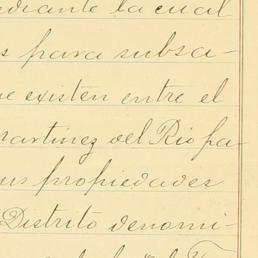 ediante la cual
s para subsa-
ue existen entre el
Martinez del Rio pa
sus propiedades
Distrito denomi-